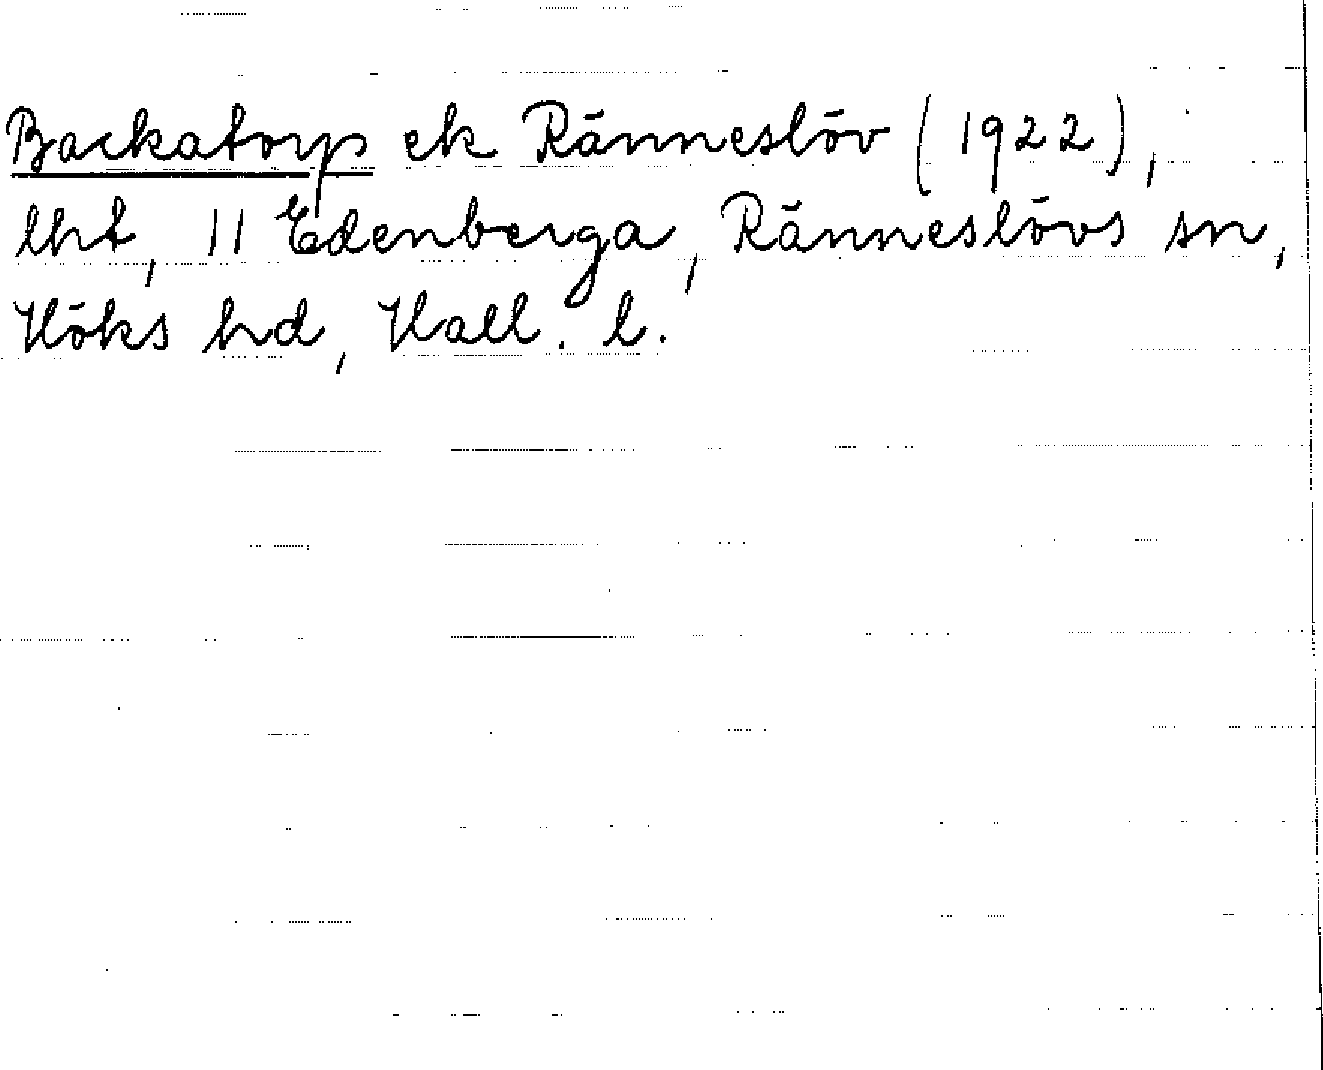 Backatorp ek Ränneslöv (1922),
lht, 11 Edenberga, Ränneslövs sn,
Höks hd, Hall. l.